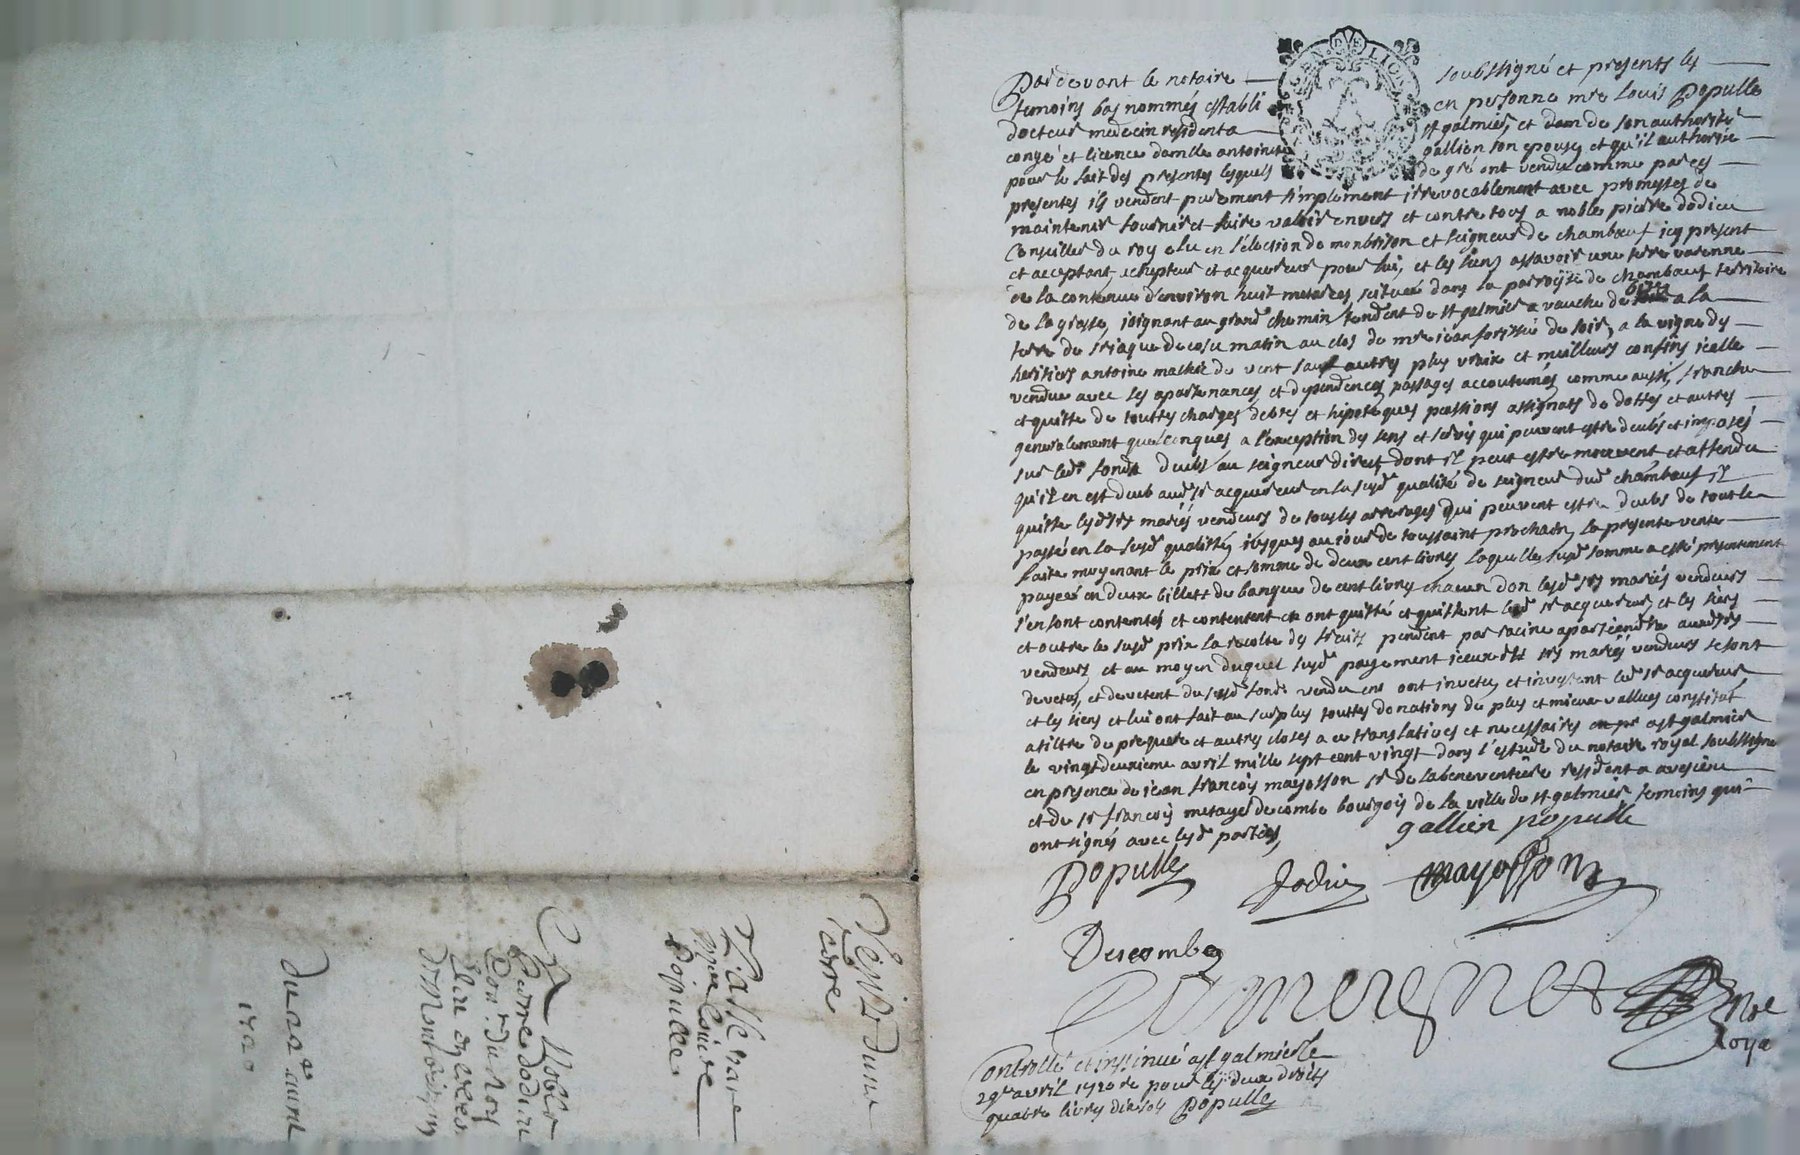 GEN. DE LION
Pardevant le notaire soubssigné et presents les
temoins bas nommés establi en personne mre Louis Populle
docteur medecin resident a st galmier, et dam de son authorité
congé et licence damlle antoinete gallien son epouse, et qu'il authorise
pour le fait des presentes lesquels de gré ont vendu comme par ces
presentes ils vendent purement simplement irrevocablement avec promesses de
maintenir fournir et faire valoir envers et contre tous a noble pierre dodieu
Conseiller du roy elu en l'election de montbrison et seigneur de chambœuf icy present
et acceptant, achepteur et acquereur pour lui, et les siens assavoir une terre varenne
de la contenue d'environ huit meterées, scituée dans la parroisse de chambœuf territoire
de la grosse, joignant au grand chemin tendent de st galmier a vauche de bize a la
terre de sr jaque decosu matin au clos de mre jean de soir, a la vigne des
heritiers antoine mathié de vent sauf autres plus vraix et meilleurs confins icelle
vendue avec ses apartenances et dependences passages accoutumés comme aussi, franche
et quitte de touttes charges debtes et hipoteques pensions assignats de dottes et autres
generalement quelconques a l'exception des sens et servis qui peuvent estre deubs et imposés
sur led fonds deubs au seigneur direct dont il peut estre mouvent et attendu
qu'il en est deub aud sr acquereur en sa susd qualité de seigneur dud chambœuf il
quitte lesd srs mariés vendeurs de tous les arrerages qui peuvent estre deubs de tout le
passé en la susd qualitté, jusques au jour de toussaint prochain, la presente vente
faite moyenant le prix et somme de deux cent livres laquelle susd somme a esté presentement
payeé en deux billets de banque de cent livres chacun don lesd srs mariés vendeurs
s'en sont contentés et contentent en ont quitté et quittent led sr acquereur, et les siens
et outre le susd prix la recolte des fruits pendent par racine apartiendra auxd srs
vendeurs, et au moyen duquel susd payement iceux dits srs mariés vendeurs se sont
devetus, et devetent du susd fonds vendu en ont invetu, et investent led sr acquereur
et les siens et lui ont fait au surplus touttes donations de plus et mieux vallues constitué
a tiltre de prequere et autres closes a ce translatives et necessaires a st galmier
le vingt deuxieme avril mille sept cent vingt dans l'estude du notaire royal soubssigné
en presence de jean françois mayosson sr de labeneventure resident a aveisieu
et de sr françois metayer decombe bourgois de la ville de st galmier temoins qui
ont signés avec lesd parties,
gallien populle
Populle Dodieu mayosson
Descombe
nre
roya
Controllé et insinué a st galmier le
29e avril 1720 re pour les deux droits
quatre livres dix sols Populle
Vente d'une
terre
Populle
Noble
Pierre dodieu
Con.r du Roy
Elau en l'elec.on
de Montbrison
du 22e avril
1720